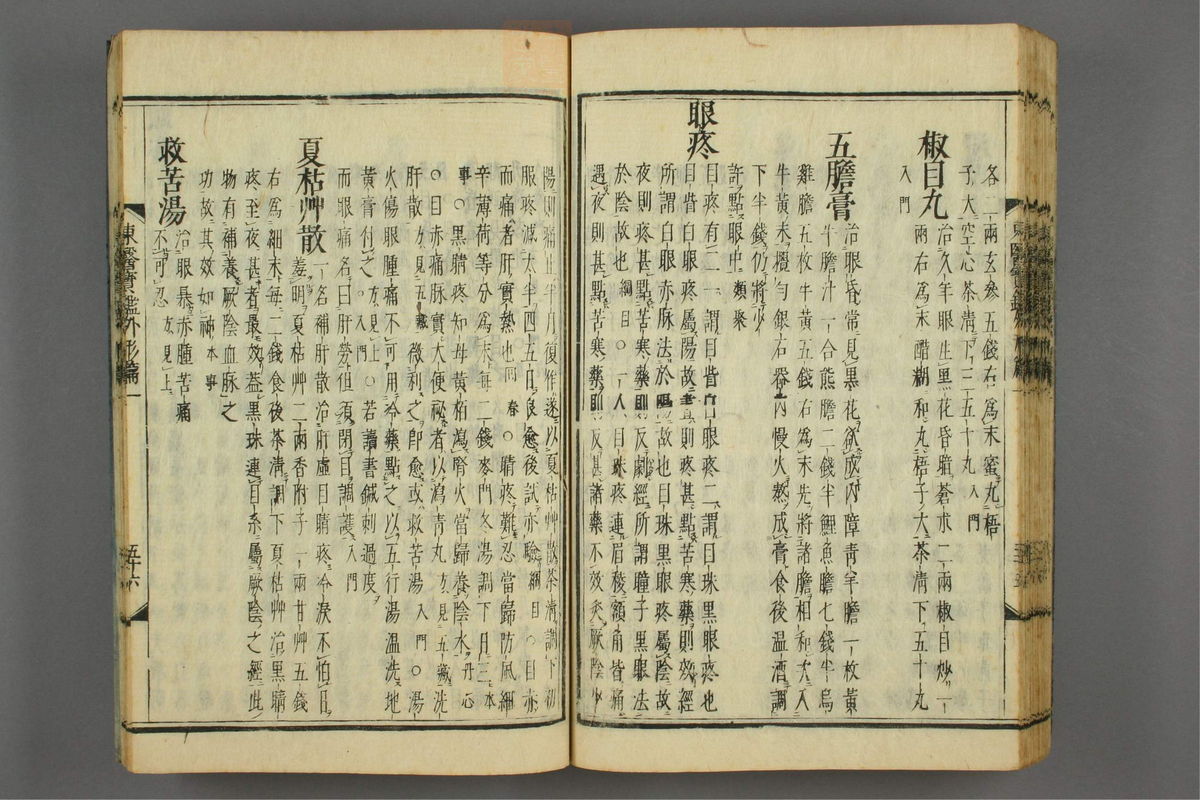 各二兩玄參五錢右爲末蜜丸梧
子大空心茶淸下三五十丸入門
椒目丸
治久年眼生黑花昏朦蒼朮二兩椒目炒一
兩右爲末醋糊和丸梧子大茶淸下五十丸
入門
五膽膏
治眼昏常見黑花欲成內障靑羊膽一枚黃
牛膽汁一合熊膽二錢半鯉魚膽七錢半烏
雞膽五枚牛黃五錢右爲末先將諸膽相和次入
牛黃末攪勻銀石器內慢火熬成膏食後溫酒調
下半錢仍將少
許點眼中類聚
眼疼
目疼有二一謂目眥白眼疼二謂目珠黑眼疼也
目眥白眼屬陽故晝則疼甚點苦寒藥則效經
所謂白眼赤脉法於陽故也目珠黑眼疼屬陰故
夜則疼甚點苦寒藥則反劇經所謂瞳子黑眼法
於陰故也綱目○一人目珠疼連眉稜額角皆痛
遇夜則甚點苦寒藥則反甚諸藥不效灸厥陰少
陽則疼止半月復作遂以夏枯艸散茶淸調下初
服疼減太半四五日良愈後試亦驗綱目○目赤
而痛者肝實熱也回春○睛疼難忍當歸防風細
辛薄荷等分爲末每二錢麥門冬湯調下日三本
事○黑睛疼知母黃栢瀉腎火當歸養陰水丹心
○目赤痛脉實大便祕者以瀉靑丸方見五藏洗
肝散方見五藏微利之卽愈或救苦湯入門○湯
火傷眼腫痛不可用冷藥點之以五行湯溫洗地
黃膏付之方見上入門○若讀書鍼刺過度
而眼痛名曰肝勞但須閉目調護入門
夏枯艸散
一名補肝散治肝虛目睛疼冷淚不怕日
羞明夏枯艸二兩香附子一兩甘艸五錢
右爲細末每二錢食後茶淸調下夏枯艸治黑睛
疼至夜甚者最效盖黑珠連目系屬厥陰之經此
物有補養厥陰血脉之
功故其效如神本事
救苦湯
治眼暴赤腫苦痛
不可忍方見上
東醫寶鑑外形篇一
五十六